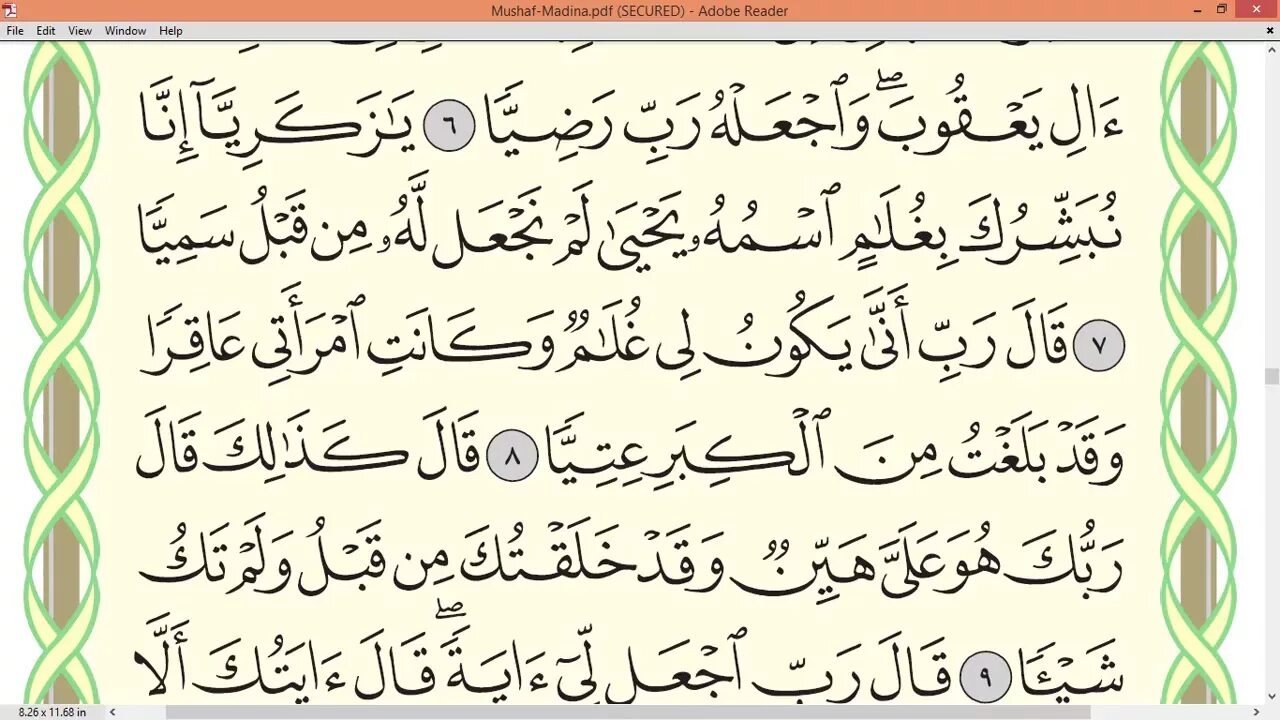 Mushaf-Madina.pdf (SECURED) - Adobe Reader
File Edit View Window Help
ءَالِ يَعْقُوبَ ۖ وَٱجْعَلْهُ رَبِّ رَضِيًّا ٦ يَٰزَكَرِيَّآ إِنَّا
نُبَشِّرُكَ بِغُلَٰمٍ ٱسْمُهُۥ يَحْيَىٰ لَمْ نَجْعَل لَّهُۥ مِن قَبْلُ سَمِيًّا
٧ قَالَ رَبِّ أَنَّىٰ يَكُونُ لِى غُلَٰمٌ وَكَانَتِ ٱمْرَأَتِى عَاقِرًا
وَقَدْ بَلَغْتُ مِنَ ٱلْكِبَرِ عِتِيًّا ٨ قَالَ كَذَٰلِكَ قَالَ
رَبُّكَ هُوَ عَلَىَّ هَيِّنٌ وَقَدْ خَلَقْتُكَ مِن قَبْلُ وَلَمْ تَكُ
شَيْـًٔا ٩ قَالَ رَبِّ ٱجْعَل لِّىٓ ءَايَةً ۖ قَالَ ءَايَتُكَ أَلَّا
8.26 x 11.68 in